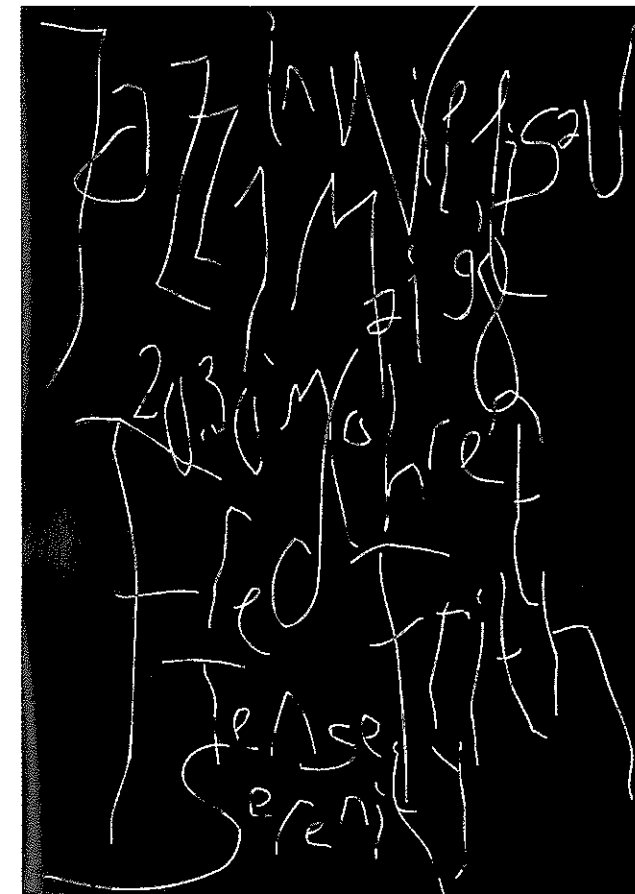 Jazz in Willisau
1 Mai 98
20.30 im Mohren
Fred Frith
Tense
Serenity